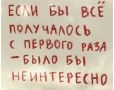 ЕСЛИ БЫ ВСЁ
ПОЛУЧАЛОСЬ
С ПЕРВОГО РАЗА
– БЫЛО БЫ
НЕИНТЕРЕСНО